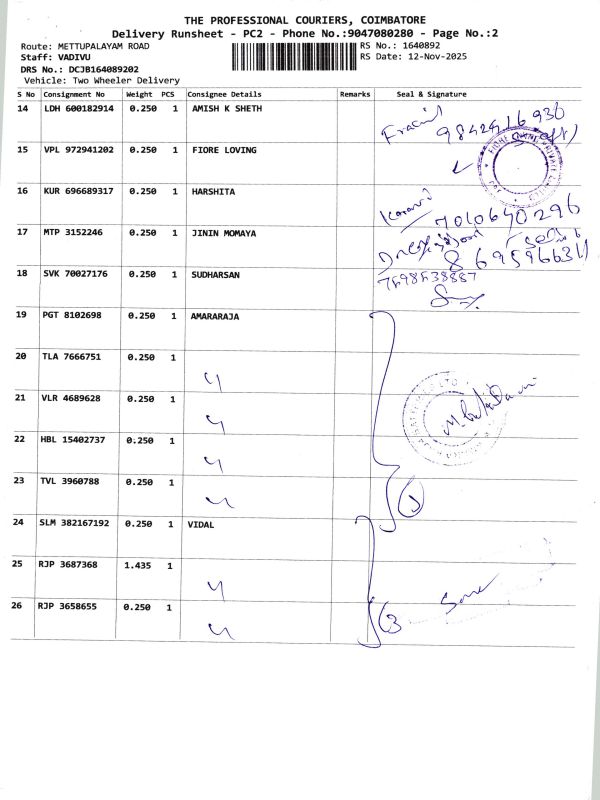 THE PROFESSIONAL COURIERS, COIMBATORE
Delivery Runsheet - PC2 - Phone No.:9047080280 - Page No.:2
Route: METTUPALAYAM ROAD RS No.: 1640892
Staff: VADIVU RS Date: 12-Nov-2025
DRS No.: DCJB164089202
Vehicle: Two Wheeler Delivery
S No Consignment No Weight PCS Consignee Details Remarks Seal & Signature
14 LDH 600182914 0.250 1 AMISH K SHETH
15 VPL 972941202 0.250 1 FIORE LOVING
16 KUR 696689317 0.250 1 HARSHITA
7010640296
17 MTP 3152246 0.250 1 JININ MOMAYA
18 SVK 70027176 0.250 1 SUDHARSAN
19 PGT 8102698 0.250 1 AMARARAJA
20 TLA 7666751 0.250 1
21 VLR 4689628 0.250 1
22 HBL 15402737 0.250 1
23 TVL 3960788 0.250 1
24 SLM 382167192 0.250 1 VIDAL
25 RJP 3687368 1.435 1
26 RJP 3658655 0.250 1
3